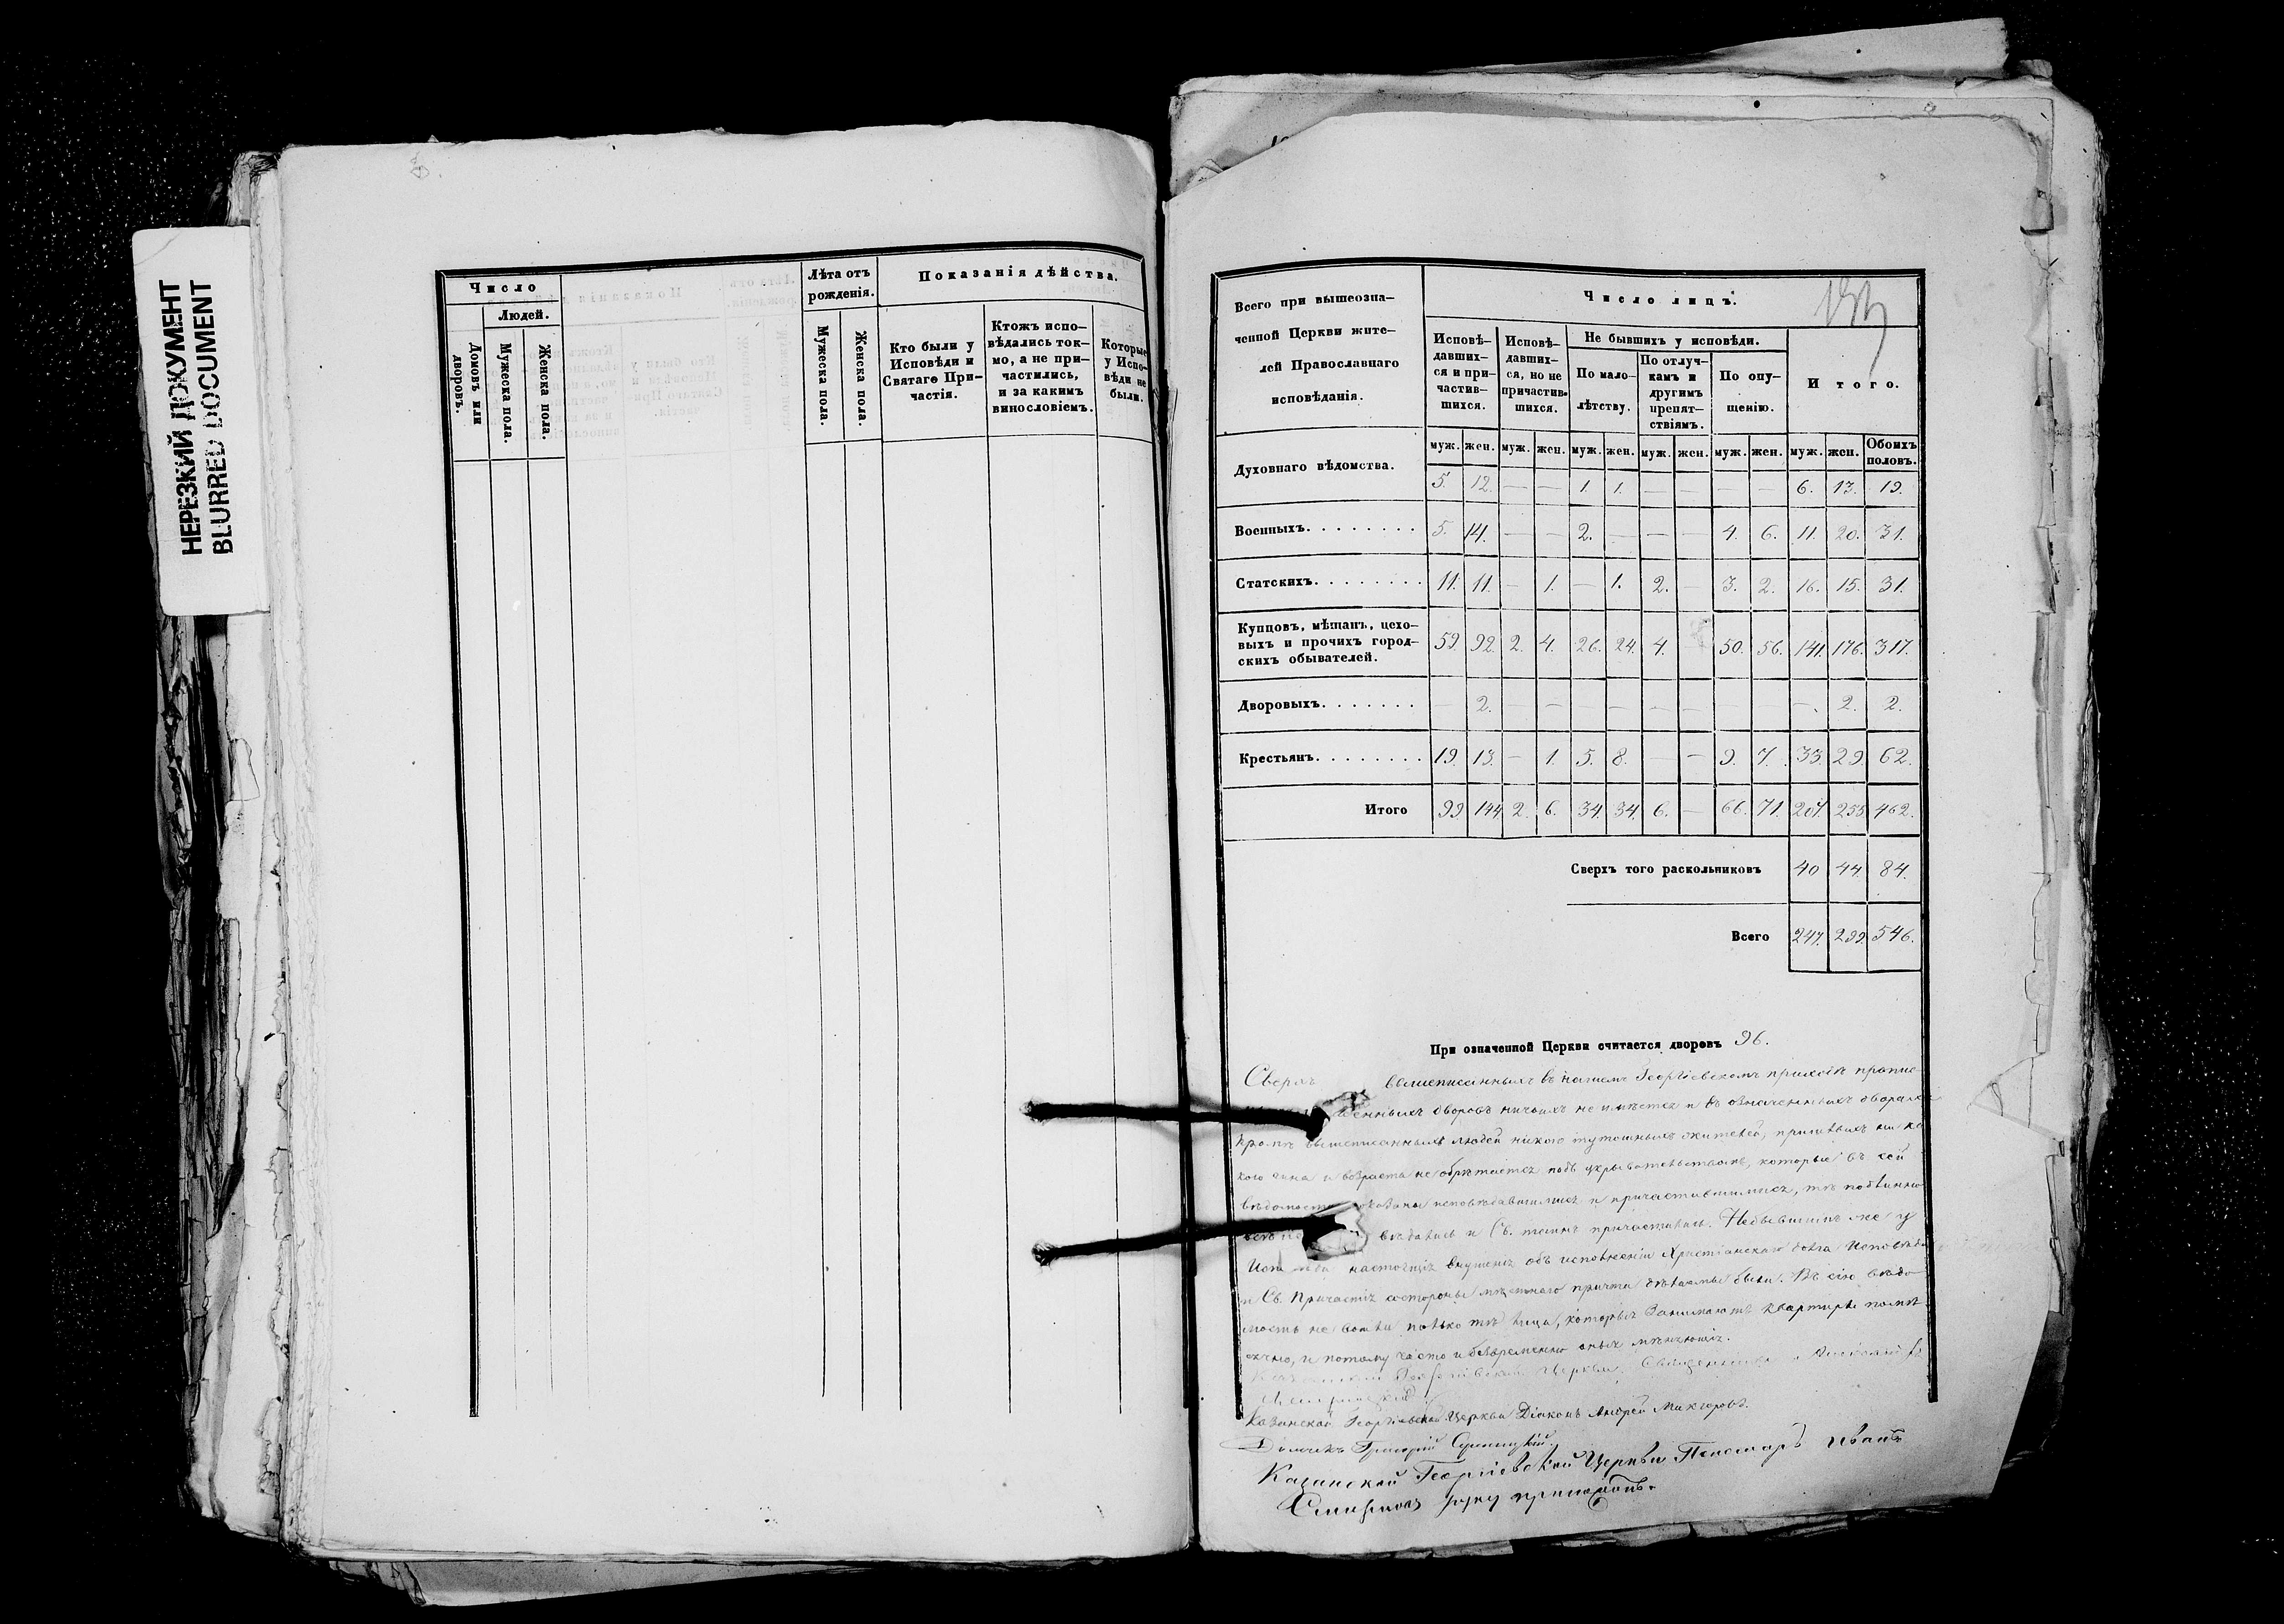 НЕРЕЗКИЙ ДОКУМЕНТ
BLURRED DOCUMENT
Число
Людей.
Домовъ или дворовъ.
Мужеска пола.
Женска пола.
Лѣта отъ рожденія.
Мужеска пола.
Женска пола.
Показанія дѣйства.
Кто были у Исповѣди и Святаго Причастія.
Ктожъ исповѣдались токмо, а не причастились, и за какимъ винословіемъ.
Которые у Исповѣди не были.
Всего при вышеозна-
ченной Церкви жите-
лей Православнаго
исповѣданія.
Число лицъ.
Исповѣ-
давших-
ся и при-
частив-
шихся.
Исповѣ-
давших-
ся, но не
причастив-
шихся.
Не бывшихъ у исповѣди.
По мало-
лѣтству.
По отлуч-
камъ и
другимъ
препят-
ствіямъ.
По опу-
щенію.
Итого.
муж. жен. муж. жен. муж. жен. муж. жен. муж. жен. муж. жен. Обоихъ половъ.
Духовнаго вѣдомства. 5. 12. — — 1. 1. — — — — 6. 13. 19.
Военныхъ. 5. 14. — — 2. — — — 4. 6. 11. 20. 31.
Статскихъ. 11. 11. — 1. — 1. 2. — 3. 2. 16. 15. 31.
Купцовъ, мѣщанъ, цехо-
выхъ и прочихъ город-
скихъ обывателей. 59. 92. 2. 4. 26. 24. 4. — 50. 56. 141. 176. 317.
Дворовыхъ. — 2. — — — — — — — — — 2. 2.
Крестьянъ. 19. 13. — 1. 5. 8. — — 9. 7. 33. 29. 62.
Итого 99. 144. 2. 6. 34. 34. 6. — 66. 71. 207. 255 462.
Сверхъ того раскольниковъ 40 44. 84.
Всего 247. 299. 546.
При означенной Церкви считается дворовъ 96.
Сверхъ вышеписанныхъ въ нашемъ Георгіевскомъ приходѣ
дворовъ ничьихъ не имѣется и въ означенныхъ дворахъ
кромѣ вышеписанныхъ людей никого тутошнихъ жителей, пришлыхъ ни ка-
кого чина и возраста не обрѣтается подъ укрывательствомъ, которые въ сей
исповѣдавшимися и причастившимися, тѣ
и Св. таинъ причастились. Небывшимъ же у
настоящія внушенія объ исполненіи Христіанскаго долга Исповѣди
и Св. Причастія со стороны мѣстнаго причта дѣлаемы были. Въ сію вѣдо-
мость не вошли только тѣ лица, которыя занимаютъ квартиры помѣ-
сячно, и потому часто и безвременно оныя мѣняющія.
Георгіевской Церкви Священникъ
Казанской Георгіевской Церкви Діаконъ Андрей
Дьячекъ Григорій
Казанской Георгіевской Церкви Пономарь Иванъ
Смирновъ руку приложилъ.